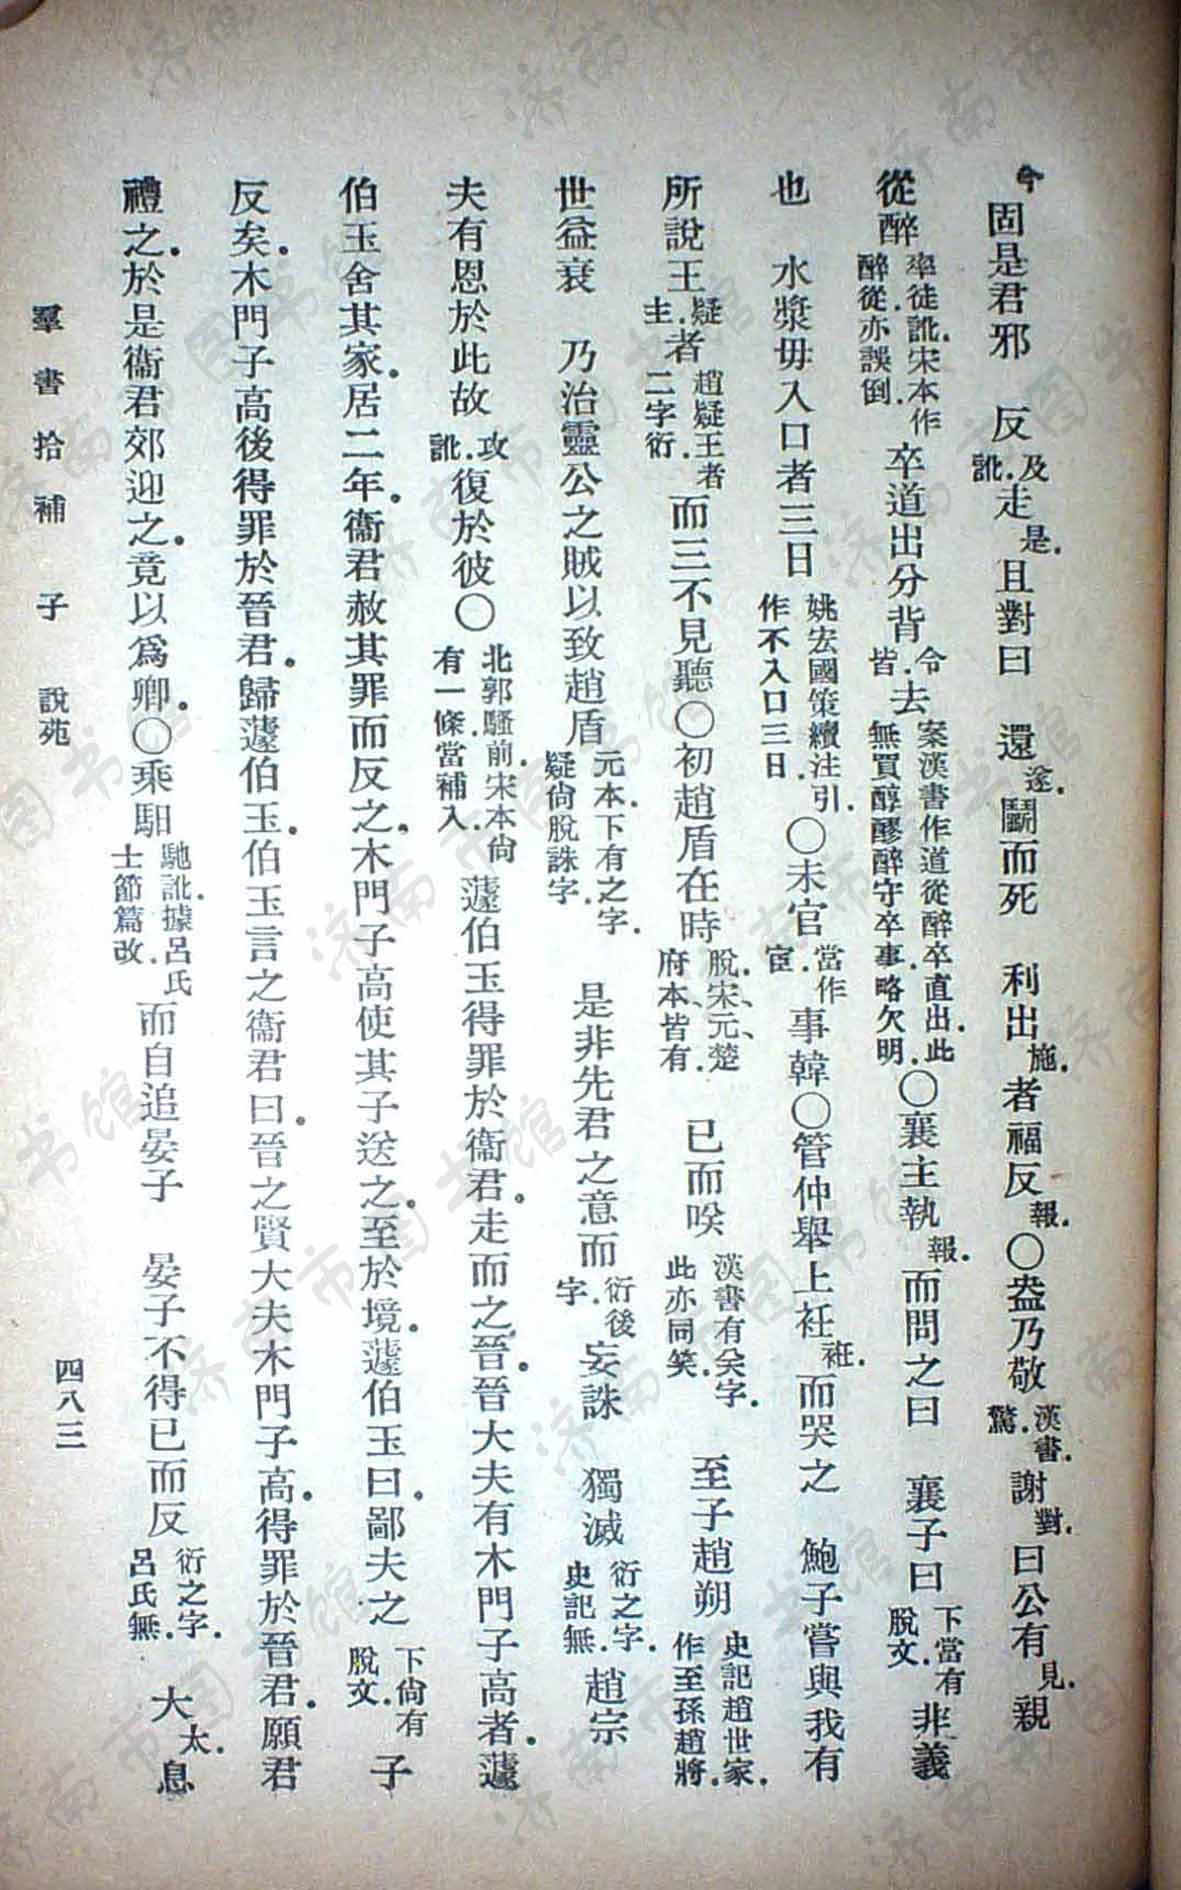 今固是君邪　反及訛.走是.且對曰　還途.鬭而死　利出施.者福反報.〇盎乃敬漢書.驚.謝對.曰公有見.親
從醉率徒.訛.宋本作醉從.亦誤倒.卒道出分背令.皆.去案漢書作道從醉卒直出.此無買醇醪醉守卒事.略欠明.〇襄主執報.而問之曰　襄子曰下當有脫文.非義
也　水漿毋入口者三日姚宏國策續注引.作不入口三日.〇未官當作宦.事韓〇管仲舉上衽袵.而哭之　鮑子嘗與我有
所說王疑主.者趙疑王者二字衍.而三不見聽〇初趙盾在時脫.宋、元、楚府本、皆有.已而咲漢書有𠈌字.此亦同笑.至子趙朔史記趙世家.作至孫趙將.
世益衰　乃治靈公之賊以致趙盾元本.下有之字.疑尙脫誅字.是非先君之意而衍後字.妄誅　獨滅衍之字.史記無.趙宗
夫有恩於此故攻.訛.復於彼〇北郭騷前.宋本尙有一條.當補入.蘧伯玉得罪於衞君.走而之晉.晉大夫有木門子高者.蘧
伯玉舍其家.居二年.衞君赦其罪而反之.木門子高使其子送之.至於境.蘧伯玉曰.鄙夫之下尙有脫文.子
反矣.木門子高後得罪於晉君.歸蘧伯玉.伯玉言之衞君曰.晉之賢大夫木門子高.得罪於晉君.願君
禮之.於是衞君郊迎之.竟以爲卿.〇乘馹馳訛.據呂氏士節篇改.而自追晏子　晏子不得已而反衍之字.呂氏無.大太.息
羣書拾補　子　說苑　四八三